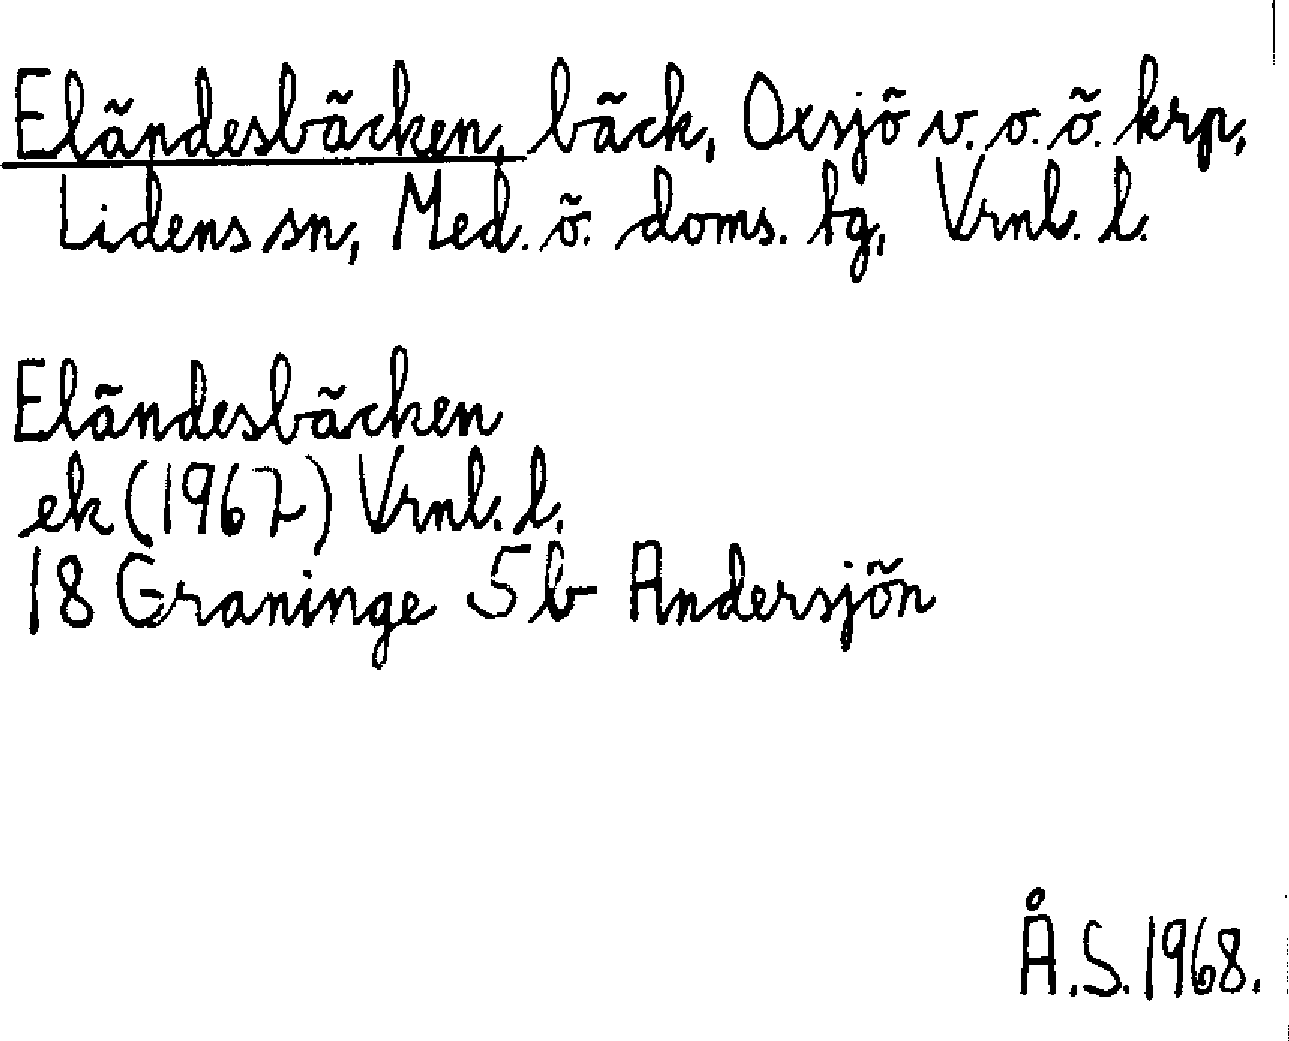 Eländesbäcken, bäck, Oxsjö v. o. ö. krp,
Lidens sn, Med. ö. doms. tg, Vrnl. l.
Eländesbäcken
ek (1967) Vrnl. l.
18 Graninge 5b Andersjön
Å.S. 1968.